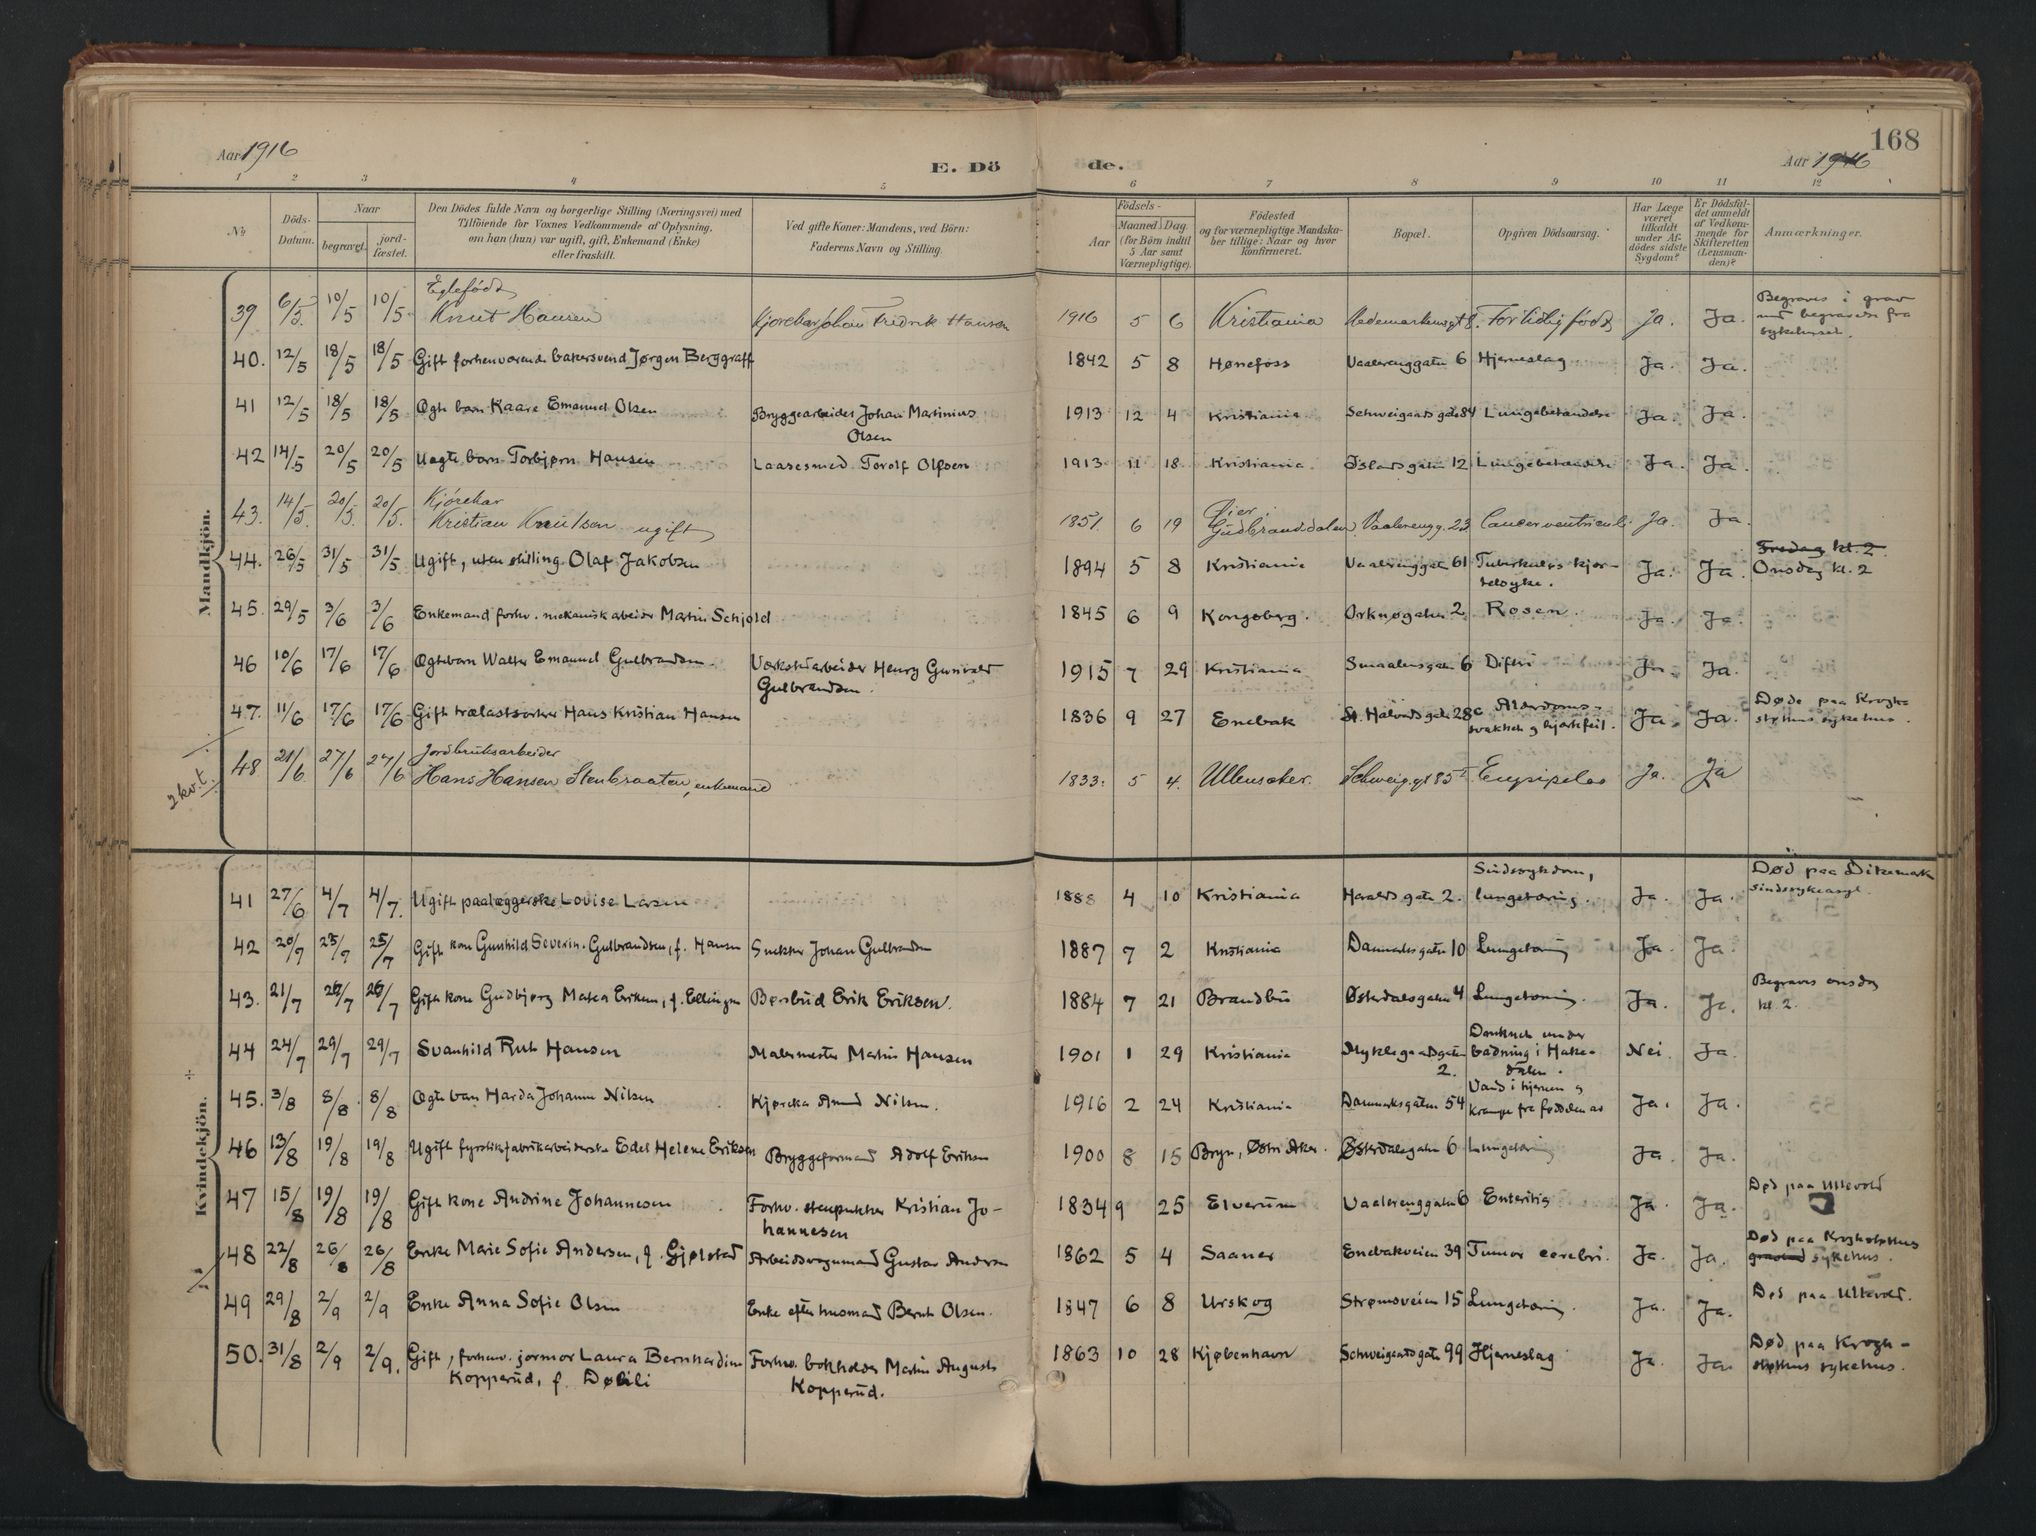 168
Aar 1916
E. Dö
de.
Aar 1916
1 2 3 4 5 6 7 8 9 10 11 12
No
Döds-
Datum.
Naar
begravet.
jord-
fæstet.
Den Dödes fulde Navn og borgerlige Stilling (Næringsvei) med
Tilföiende for Voxnes Vedkommende af Oplysning,
om han (hun) var ugift, gift, Enkemand (Enke)
eller fraskilt.
Ved gifte Koner: Mandens, ved Börn:
Faderens Navn og Stilling.
Födsels-
Aar
Maaned. Dag.
(for Börn indtil
5 Aar samt
Værnepligtige).
Födested
og for værnepligtige Mandska-
ber tillige: Naar og hvor
konfirmeret.
Bopæl.
Opgiven Dödsaarsag.
Har Læge
været
tilkaldt
under Af-
dödes sidste
Sygdom?
Er Dödsfal-
det anmeldt
af Vedkom-
mende for
Skifteretten
(Lensman-
den)?
Anmærkninger.
Mandkjön.
Egtefödt
39 6/5 10/5 10/5 Knut Hansen Kjørekar Johan Fredrik Hansen 1916 5 6 Kristiania Hedemarkensgt 8. For tidlig födt Ja. Ja. Begraves i grav
med begravelse fra
sykehuset.
40. 12/5 18/5 18/5 Gift forhenværende bakersvend Jørgen Berggraff 1842 5 8 Hønefoss Vaalerenggaten 6 Hjerneslag Ja. Ja.
41 12/5 18/5 18/5 Ægte barn Kaare Emanuel Olsen Bryggearbeider Johan Martinius
Olsen 1913 12 4 Kristiania Schweigaards gate 84 Lungebetændelse Ja. Ja.
42 14/5 20/5 20/5 Uegte barn Torbjørn Hansen Laasesmed Torolf Olfsen 1913 11 18 Kristiania Islands gaten 12 Lungebetændelse Ja. Ja.
Kjörekar
43. 14/5. 20/5. 20/5. Kristian Knutsen ugift 1851 6 19 Öier,
Gudbrandsdalen Vaalerengg. 23 Cancer ventriculi Ja. Ja.
44. 26/5 31/5 31/5 Ugift, uten stilling Olaf Jakobsen 1894 5 8 Kristiania Vaalerenggaten 61 Tuberkuløs kjer-
telsyke. Ja. Ja. Fredag kl. 2
Onsdag kl. 2
45. 29/5 3/6 3/6 Enkemand forhv. mekanisk arbeider Martin Schjold 1845 6 9 Kongsberg. Orknøgaten 2 Rosen. Ja. Ja.
46 10/6 17/6 17/6 Ægtebarn Walter Emanuel Gulbrandsen. Verkstedarbeider Henry Gunvald
Gulbrandsen. 1915 7 29 Kristiania Smaalensgaten 6 Difteri Ja. Ja.
47. 11/6 17/6 17/6 Gift trælastsorterer Hans Kristian Hansen 1836 9 27 Enebak St. Halvards gaten 28c Alderdoms-
svakhet og hjertefeil. Ja. Ja. Døde paa Krogh-
støthus sykehus.
2 kv.t.
Jordbruksarbeider
48 21/6 27/6 27/6 Hans Hansen Stenbraaten, enkemand 1833. 5 4. Ullensaker. Schweig.gt 85 I Erysipelas Ja. Ja
Kvindekjön.
41 27/6 4/7 4/7. Ugift paalæggerske Lovise Larsen 1888 4 10 Kristiania Haralds gate 2. Sindssykdom,
lungetæring. Ja. Ja. Død paa Dikemark
sindssykeasyl.
42 20/7 25/7 25/7 Gift kone Gunhild Severin. Gulbrandsen, f. Hansen Snekker Johan Gulbrandsen 1887 7 2 Kristiania Danmarksgaten 10 Lungetæring Ja. Ja.
43. 21/7 26/7 26/7 Gift kone Gudbjørg Matea Eriksen, f. Ellingsen Børsbud Erik Eriksen. 1884 7 21 Brandbu Østerdalsgaten 4 Lungetæring. Ja. Ja. Begraves onsdag
kl. 2.
44 24/7 29/7 29/7 Svanhild Rut Hansen Malermester Martin Hansen 1901 1 29 Kristiania Myklegaardgaten
2. Druknet under
badning i Hake-
dalen. Nei. Ja.
45. 3/8 8/8 8/8 Ægte barn Harda Johanne Nilsen Kjørekar Nilsen. 1916 2 24 Kristiania Danmarksgaten 54 Vand i hjernen og
krampe fra fødselen av Ja. Ja.
46 13/8 19/8 19/8 Ugift fyrstikfabrikarbeiderske Edel Helene Eriksen Bryggeformand Adolf Eriksen 1900 8 15 Bryn, Østre Aker. Østerdalsgaten 6 Lungetæring Ja. Ja.
47 15/8 19/8 19/8 Gift kone Andrine Johannesen Forhv. stenpukker Kristian Jo-
hannesen 1834 9 25 Elverum Vaalerenggaten 6 Enteritis Ja. Ja. Død paa Ullevold
48 22/8 26/8 26/8 Enke Marie Sofie Andersen, f. Gjølstad Arbeidsvognmand Gustav Andersen 1862 5 4 Saaner Enebakveien 39 Tumor cerebri. Ja. Ja. Død paa Krogstøthus
sykehus.
49 29/8 2/9 2/9 Enke Anna Sofie Olsen Enke efter husmand Bernt Olsen. 1847 6 8 Urskog Strømsveien 15 Lungetæring. Ja. Ja. Død paa Ullevold.
50. 31/8 2/9 2/9. Gift, forhenv. jormor Laura Bernhardine
Kopperud, f. Døbli Forhv. bokholder Martin Augusts
Kopperud. 1863 10 28 Kjøbenhavn Schweigaardsgate 99 Hjerneslag Ja. Ja. Død paa Krogh-
støthus sykehus.